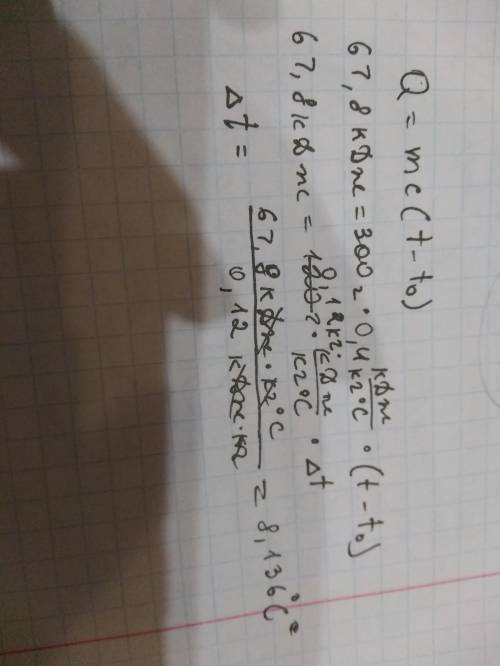 Q = mc(t - t₀)
67,8 кДж = 300 г · 0,4 кДж/кг°C · (t - t₀)
67,8 кДж = 0,12 кг · кДж/кг°C · Δt
Δt = 67,8 кДж · кг°C / 0,12 кДж · кг = 8,136°C